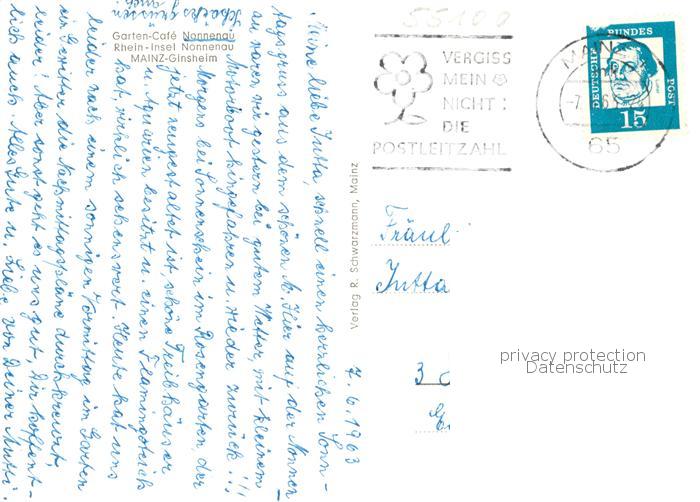 55100
Garten-Café Nonnenau
Rhein-Insel Nonnenau
MAINZ-Ginsheim
VERGISS
MEIN
NICHT:
DIE
POSTLEITZAHL
MAINZ
65
DEUTSCHE BUNDESPOST
15
Verlag R. Schwarzmann, Mainz
7.6.1963
Meine liebe Jutta, schnell einen herzlichen Sonn-
tagsgruss aus dem schönen M. Hier auf der Nonnen-
au waren wir gestern bei gutem Wetter, mit kleinem
Motorboot hingefahren u. wieder zurück!!!
Morgens bei Sonnenschein im Rosengarten, der
jetzt neugestaltet ist, schöne Treibhäuser
u. Aquarien besitzt u. einen Flamingoteich
hat, wirklich sehenswert. Heute hat uns
leider nach einem sonnigen Vormittag im Garten
ein Gewitter die Nachmittagspläne durchkreuzt,
leider! Aber sonst geht es uns gut, Dir hoffent-
lich auch. Alles Gute u. Liebe von Deiner Mutti.
grüssen
auch!
Fräul
Jutta
3
privacy protection
Datenschutz